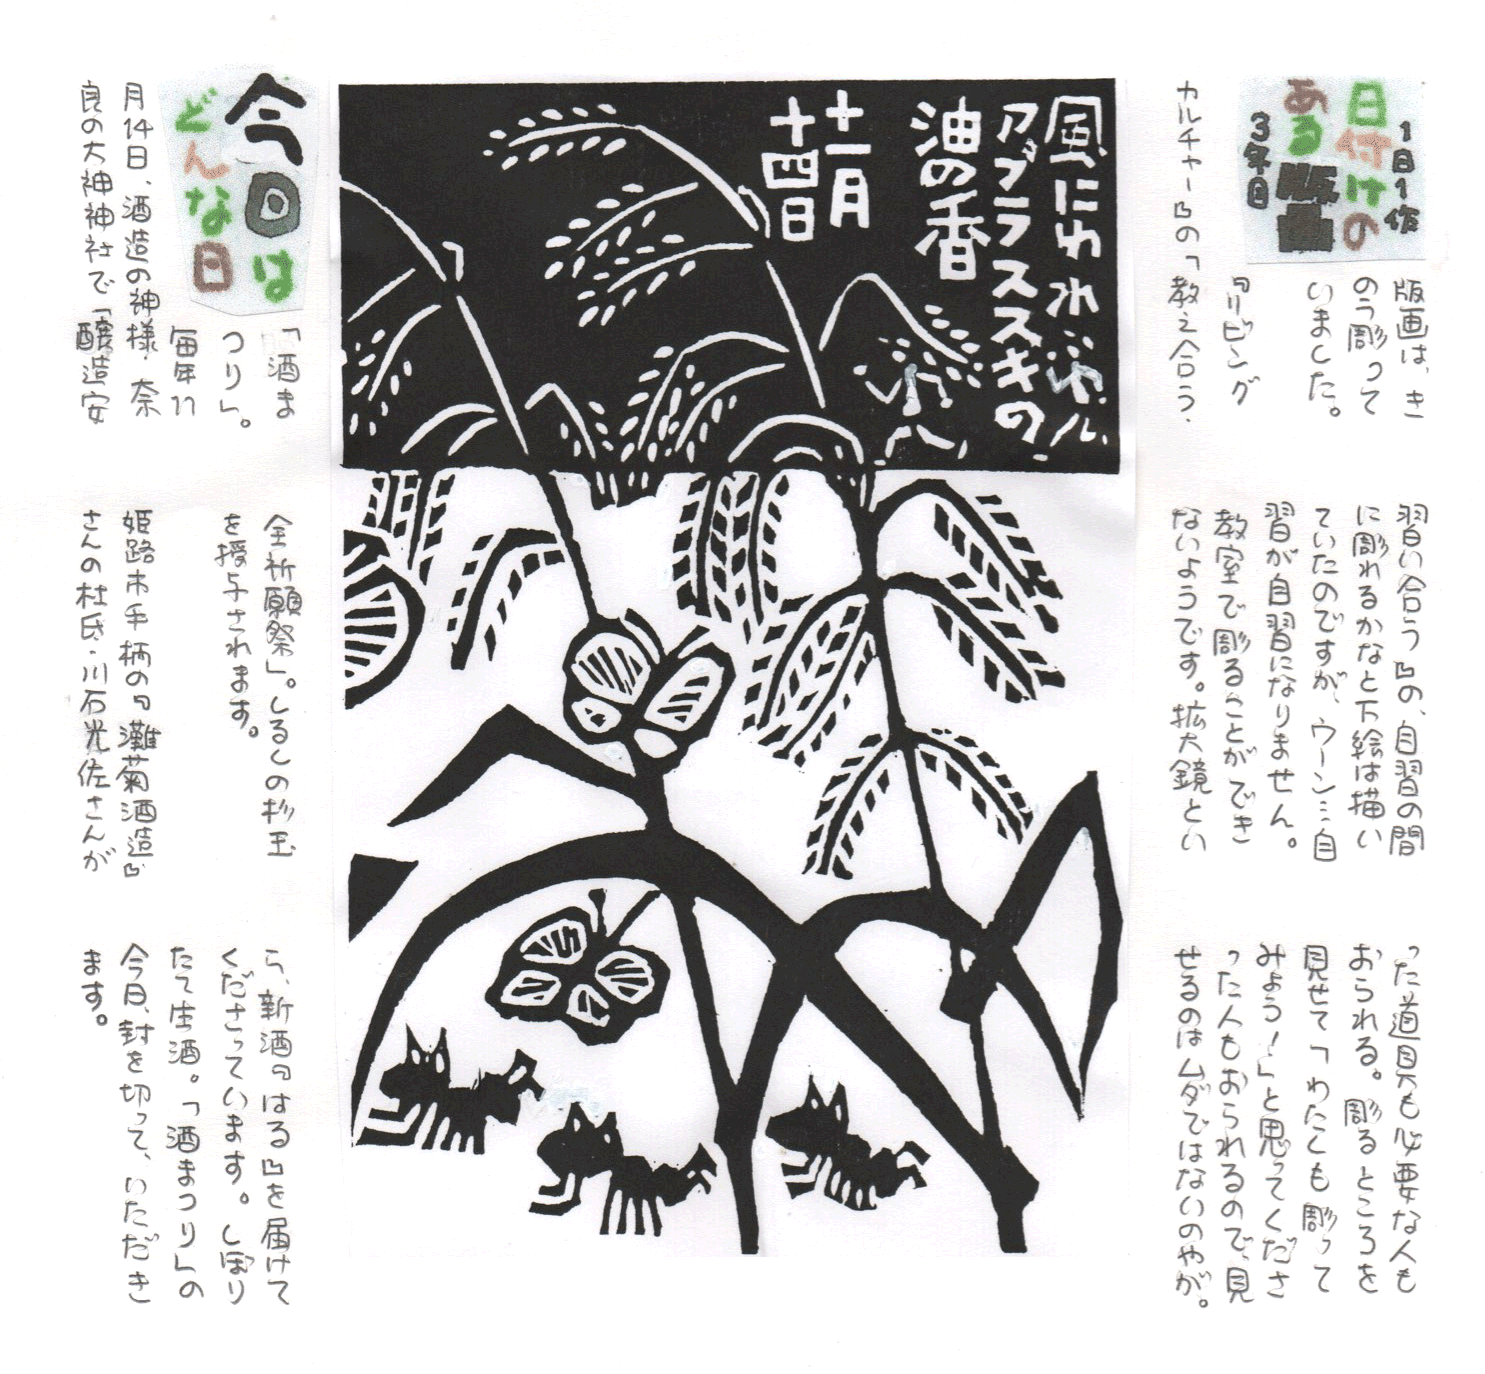 1日1作
日付けの
ある版画
3年目
版画は、き
のう彫って
いました。
『リビング
カルチャー』の「教え合う・
習い合う』の、自習の間
に彫れるかなと下絵は描い
ていたのですが、ウーン…自
習が自習になりません。
教室で彫ることができ
ないようです。拡大鏡とい
った道具も必要な人も
おられる。彫るところを
見せて「わたしも彫って
みよう!」と思ってくださ
った人もおられるので、見
せるのはムダではないのやが。
風にゆれ
アブラススキの
油の香
十一月
十四日
今日は
どんな日
「酒ま
つり」。
毎年11
月14日、酒造の神様・奈
良の大神神社で「醸造安
全祈願祭」。しるしの杉玉
を授与されます。
姫路市手柄の『灘菊酒造』
さんの杜氏・川石光佐さんか
ら、新酒『はる』を届けて
くださっています。しぼり
たて生酒。「酒まつり」の
今日、封を切って、いただき
ます。